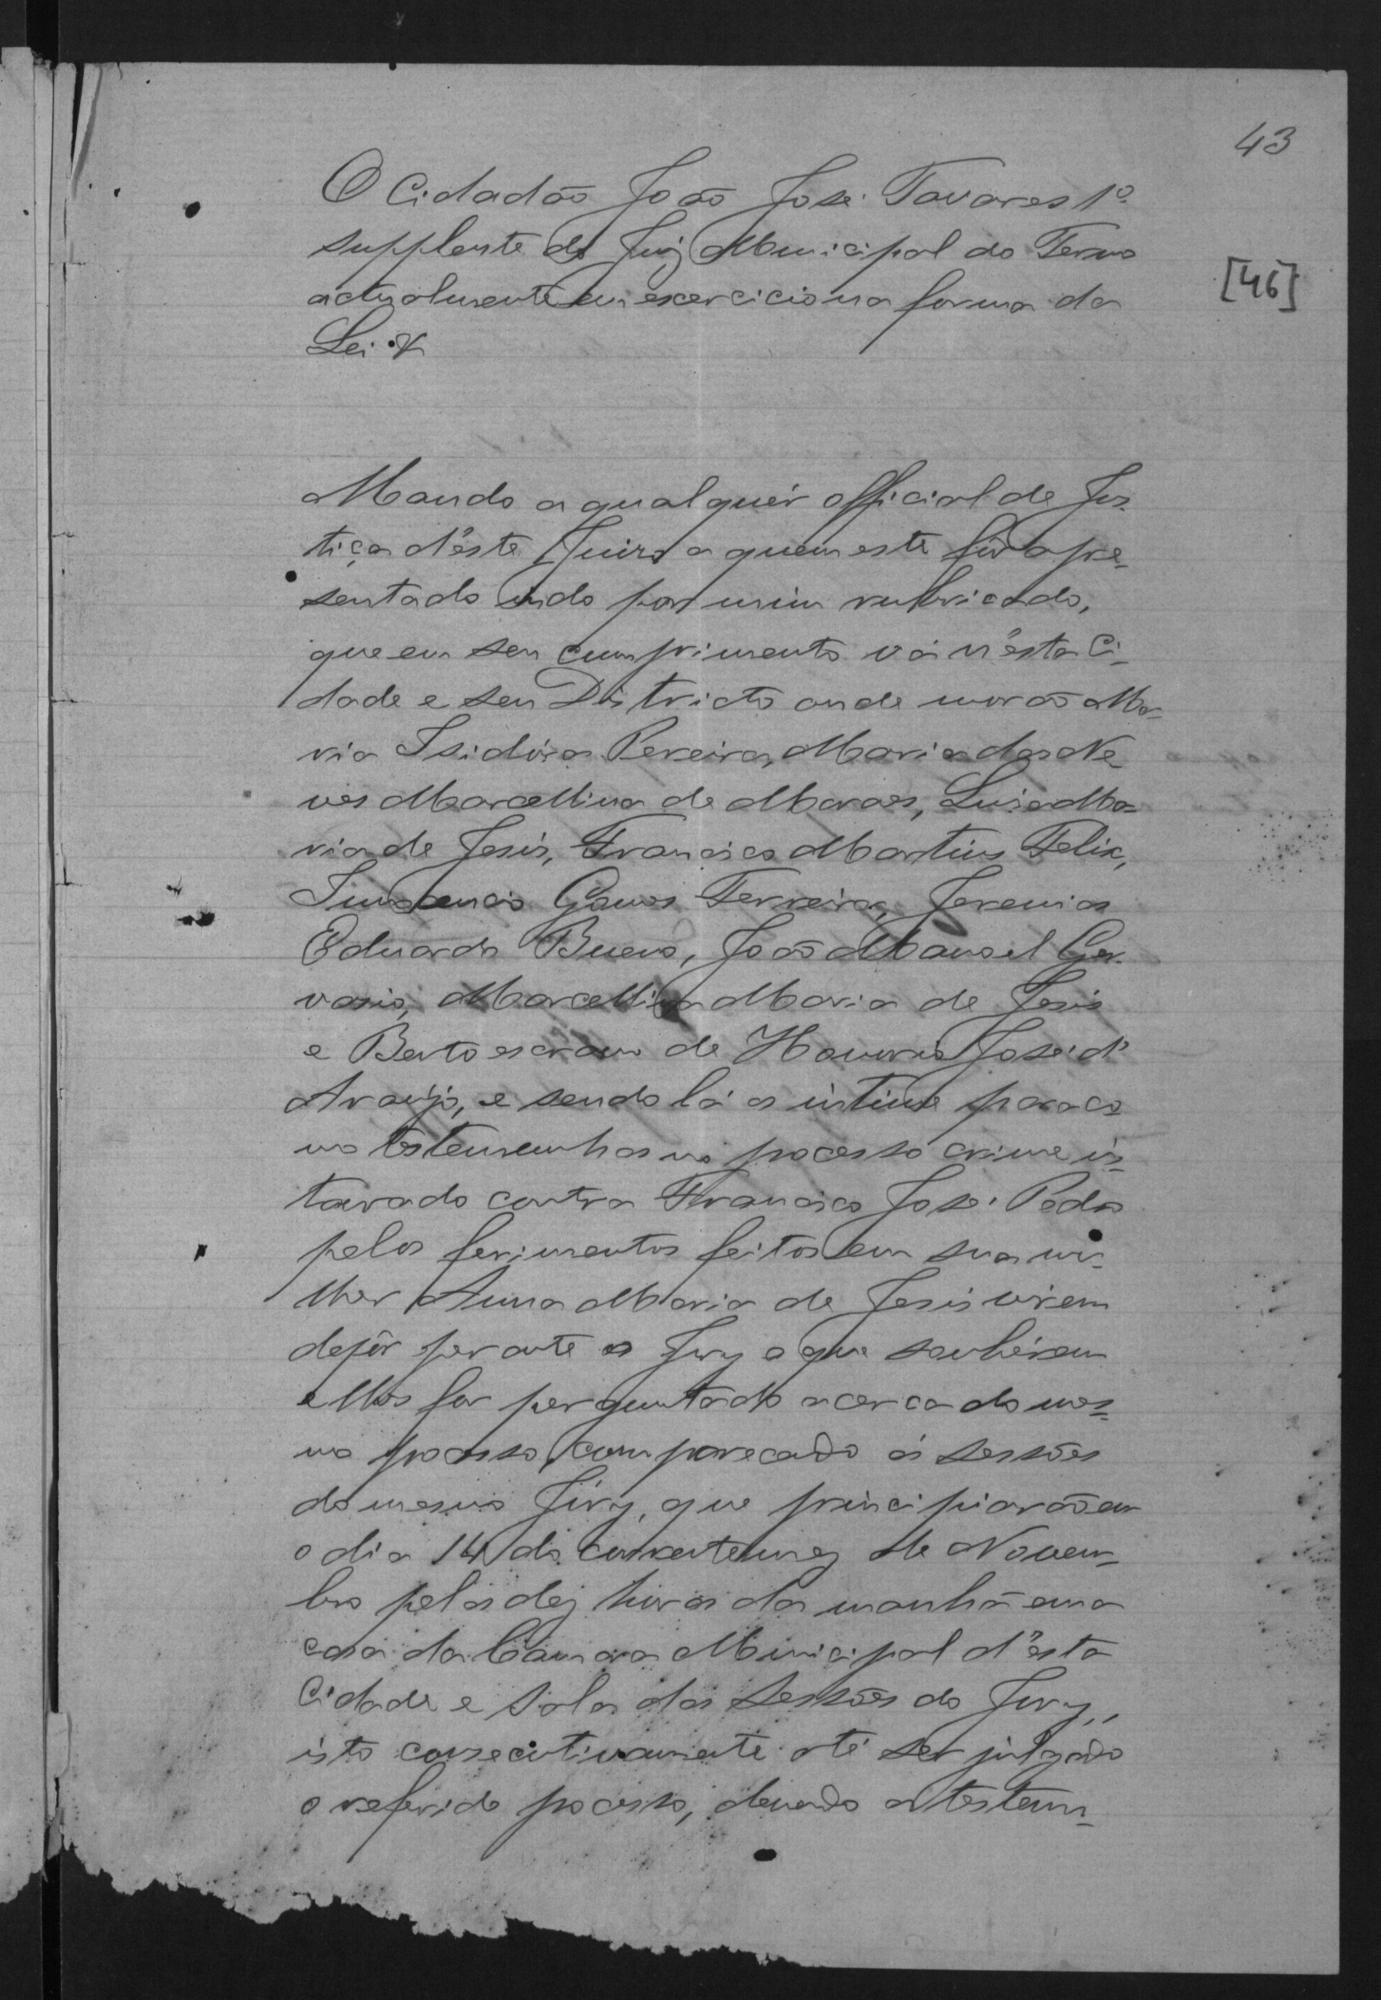 43
O Cidadão João José Tavares 1º
supplente do Juiz Municipal do Termo
actualmente em exercicio na forma da
Lei &
[46]
Mando a qualquér official de Jus-
tiça d'éste Juizo a quem este fôr apre-
sentado indo por mim rubricado,
que em seu cumprimento vá n'ésta Ci-
dade e seu Districto onde morão Ma-
ria Isidóra Pereira, Maria das Ne-
ves Marcellina de Moraes, Luiza Ma-
ria de Jesús, Francisco Martins Felix,
Gomes Ferreira, Jeremias
Eduardo Bueno, João Manoel Ger-
vasio, Marcellina Maria de Jesús
e Bento escravo de Honorio José d'
Araújo, e sendo lá os intime para co-
mo testemunhas no pocesso crime ins-
taurado contra Francisco José Pedro
pelos ferimentos feitos em sua mu-
lher Anna Maria de Jesus virem
depôr perante o Jury o que soubérem
e lhes for perguntado acerca do mes-
mo pocesso, comparecendo ás sessões
do mesmo Júry, que principiarão em
o dia 14 do corrente mez de Novem-
bro pelas dez horas da manhã em a
casa da Camara Municipal d'ésta
Cidade e Sala das Sessões do Jury,
isto consecutivamente até ser julgado
o referido pocesso, devendo as testemu-